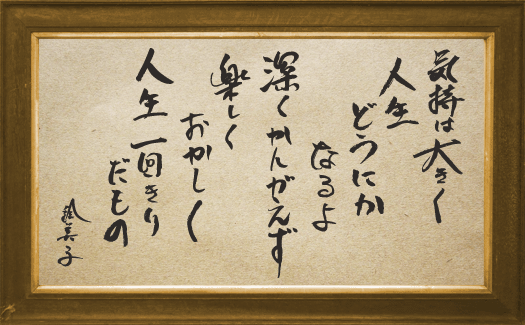 気持は大きく
人生
どうにか
なるよ
深くかんがえず
楽しく
おかしく
人生一回きり
だもの
楓美子